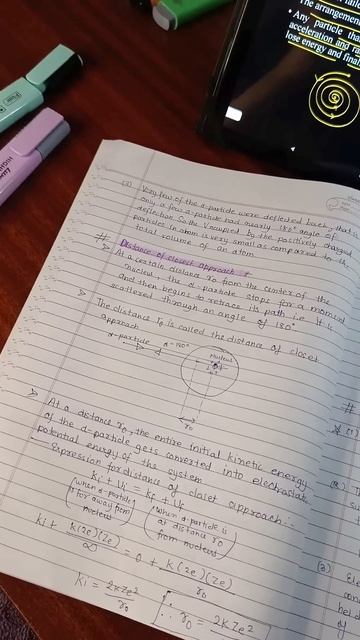 The arrangement
• Any particle tha
acceleration and ra
lose energy and final
(3) Very few of the α-particle were deflected back, that is
only a few α-particle had nearly 180° angle of
deflection. So the V occupied by the positively charged
particles in atom is very small as compared to the
total volume of an atom.
# Distance of closest approach :-
> At a certain distance r₀ from the center of the
nucleus, the α-particle stops for a moment
and then begins to retrace its path i.e. It is
scattered through an angle of 180°
> The distance r₀ is called the distance of closet
approach
α-particle
θ=180°
Nucleus
r₀
> At a distance r₀, the entire initial kinetic energy
of the α-particle gets converted into electrostatic
potential energy of the system
Expression for distance of closet approach :-
Ki + Ui = Kf + Uf
(when α-particle
is far away from
nucleus)
(when α-particle is
at distance r₀
from nucleus)
Ki + k(2e)(Ze)/∞ = 0 + k(2e)(Ze)/r₀
Ki = 2kZe²/r₀
∴ r₀ = 2kZe²
#
(3)